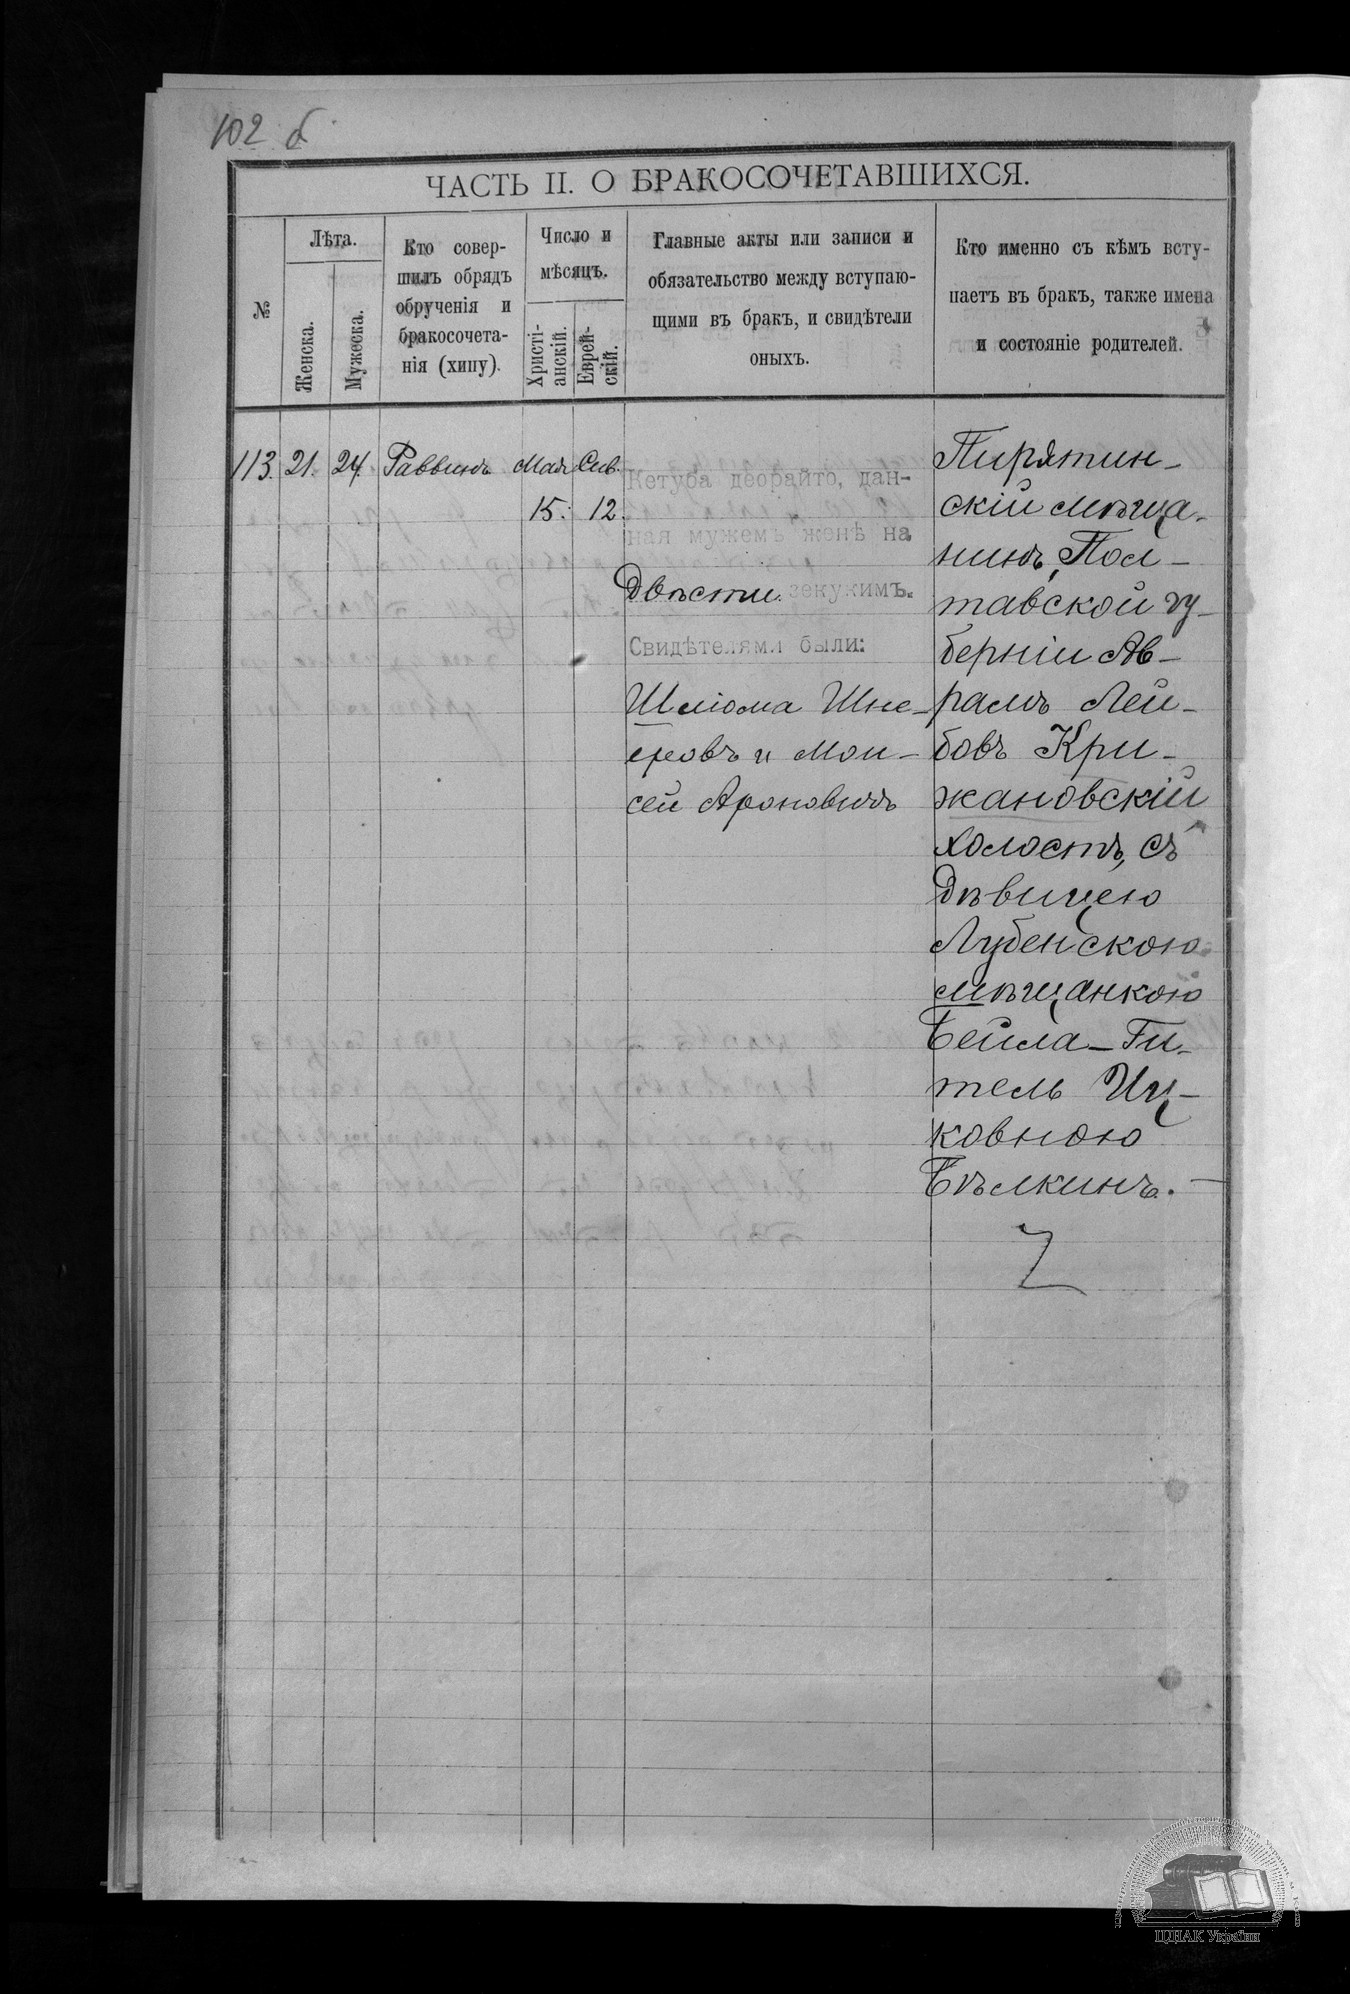 102 б
ЧАСТЬ II. О БРАКОСОЧЕТАВШИХСЯ.
№
Лѣта.
Женска.
Мужеска.
Кто совер-
шилъ обрядъ
обрученія и
бракосочета-
нія (хипу).
Число и
мѣсяцъ.
Христі-
анскій.
Еврей-
скій.
Главные акты или записи и
обязательство между вступаю-
щими въ бракъ, и свидѣтели
оныхъ.
Кто именно съ кѣмъ всту-
паетъ въ бракъ, также имена
и состояніе родителей.
113. 21. 24. Раввинъ Мая Сив.
15. 12.
Кетуба деорайто, дан-
ная мужемъ женѣ на
Двѣсти зекукимъ.
Свидѣтелями были:
Шліома Шне-
еровъ и Мои-
сей Ароновичъ
Пирятин-
скій мѣща-
нинъ, Пол-
тавской гу-
берніи Ав-
рамъ Лей-
бовъ Кри-
жановскій
холостъ, съ
дѣвицею
Лубенскою
мѣщанкою
Бейла-Ги-
тель Иц-
ковною
Бѣлкинъ.
ЦДІАК України